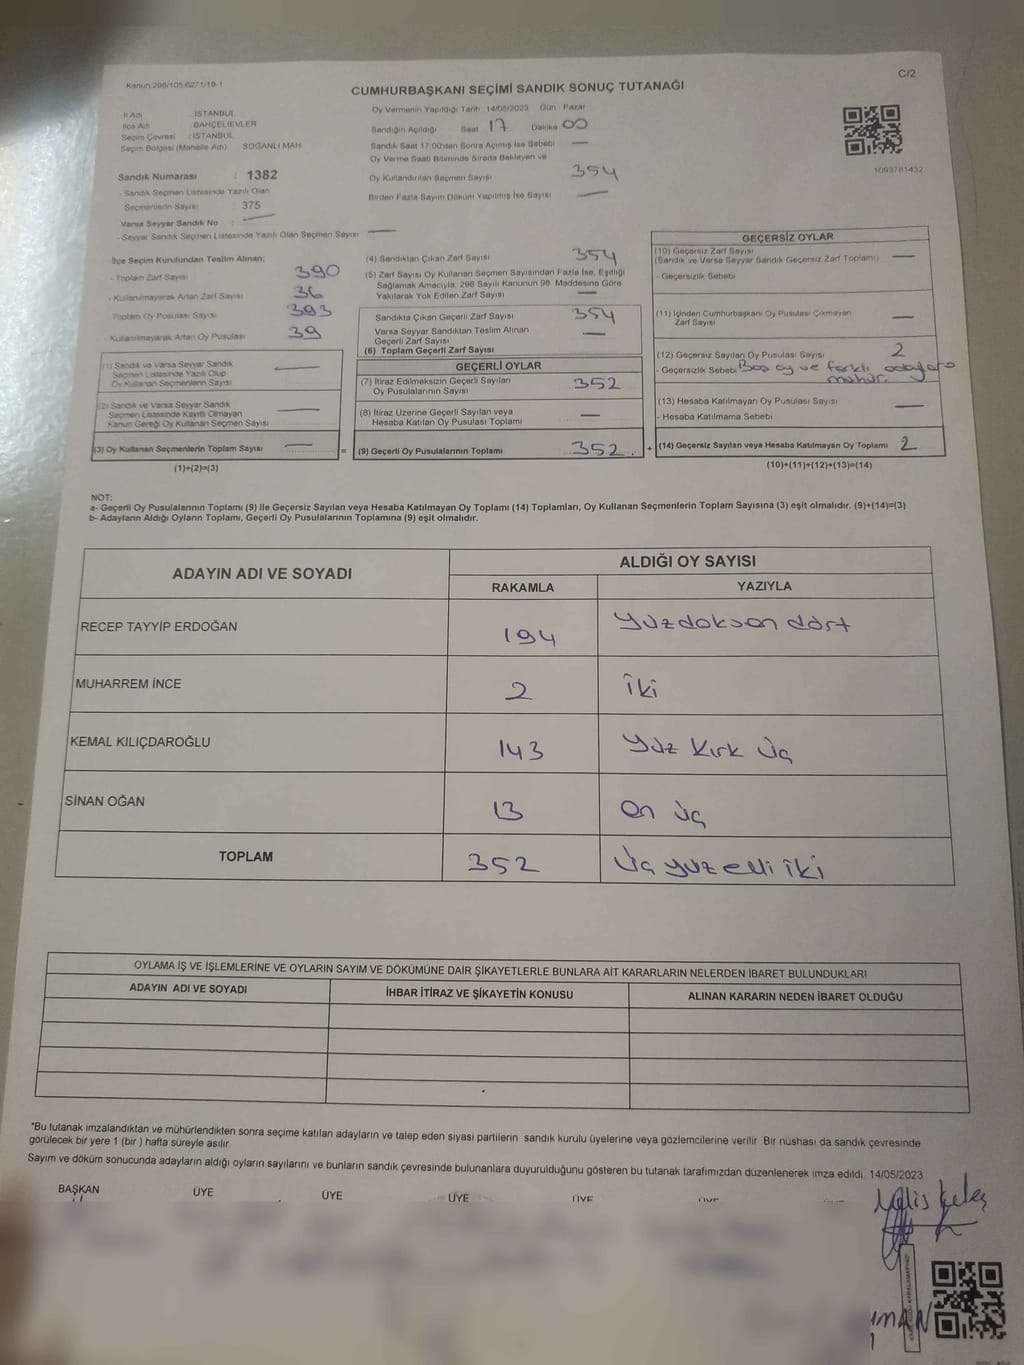 Kanun 298/105,6271/19-1
C/2
CUMHURBAŞKANI SEÇİMİ SANDIK SONUÇ TUTANAĞI
İl Adı : İSTANBUL
İlçe Adı : BAHÇELİEVLER
Seçim Çevresi : İSTANBUL
Seçim Bölgesi (Mahalle Adı) SOĞANLI MAH
Sandık Numarası : 1382
- Sandık Seçmen Listesinde Yazılı Olan
Seçmenlerin Sayısı : 375
Varsa Seyyar Sandık No : —
- Seyyar Sandık Seçmen Listesinde Yazılı Olan Seçmen Sayısı —
Oy Vermenin Yapıldığı Tarih 14/05/2023 Gün Pazar
Sandığın Açıldığı Saat 17 Dakika 00
Sandık Saat 17:00'den Sonra Açılmış İse Sebebi —
Oy Verme Saati Bitiminde Sırada Bekleyen ve
Oy Kullandırılan Seçmen Sayısı 354
Birden Fazla Sayım Döküm Yapılmış İse Sayısı —
1093781432
İlçe Seçim Kurulundan Teslim Alınan;
- Toplam Zarf Sayısı 390
- Kullanılmayarak Artan Zarf Sayısı 36
Toplam Oy Pusulası Sayısı 393
- Kullanılmayarak Artan Oy Pusulası 39
(1) Sandık ve Varsa Seyyar Sandık
Seçmen Listesinde Yazılı Olup
Oy Kullanan Seçmenlerin Sayısı —
(2) Sandık ve Varsa Seyyar Sandık
Seçmen Listesinde Kayıtlı Olmayan
Kanun Gereği Oy Kullanan Seçmen Sayısı —
(3) Oy Kullanan Seçmenlerin Toplam Sayısı — =
(1)+(2)=(3)
(4) Sandıktan Çıkan Zarf Sayısı 354
(5) Zarf Sayısı Oy Kullanan Seçmen Sayısından Fazla İse, Eşitliği
Sağlamak Amacıyla, 298 Sayılı Kanunun 98. Maddesine Göre
Yakılarak Yok Edilen Zarf Sayısı —
Sandıkta Çıkan Geçerli Zarf Sayısı 354
Varsa Seyyar Sandıktan Teslim Alınan
Geçerli Zarf Sayısı —
(6) Toplam Geçerli Zarf Sayısı
GEÇERLİ OYLAR
(7) İtiraz Edilmeksizin Geçerli Sayılan
Oy Pusulalarının Sayısı 352
(8) İtiraz Üzerine Geçerli Sayılan veya
Hesaba Katılan Oy Pusulası Toplamı —
(9) Geçerli Oy Pusulalarının Toplamı 352. +
GEÇERSİZ OYLAR
(10) Geçersiz Zarf Sayısı
(Sandık ve Varsa Seyyar Sandık Geçersiz Zarf Toplamı) —
- Geçersizlik Sebebi
(11) İçinden Cumhurbaşkanı Oy Pusulası Çıkmayan
Zarf Sayısı —
(12) Geçersiz Sayılan Oy Pusulası Sayısı 2
- Geçersizlik Sebebi Boş oy ve farklı adaylara
mühür.
(13) Hesaba Katılmayan Oy Pusulası Sayısı —
- Hesaba Katılmama Sebebi
(14) Geçersiz Sayılan veya Hesaba Katılmayan Oy Toplamı 2
(10)+(11)+(12)+(13)=(14)
NOT:
a- Geçerli Oy Pusulalarının Toplamı (9) ile Geçersiz Sayılan veya Hesaba Katılmayan Oy Toplamı (14) Toplamları, Oy Kullanan Seçmenlerin Toplam Sayısına (3) eşit olmalıdır. (9)+(14)=(3)
b- Adayların Aldığı Oyların Toplamı, Geçerli Oy Pusulalarının Toplamına (9) eşit olmalıdır.
ADAYIN ADI VE SOYADI
ALDIĞI OY SAYISI
RAKAMLA YAZIYLA
RECEP TAYYİP ERDOĞAN 194 Yüzdoksan dört
MUHARREM İNCE 2 iki
KEMAL KILIÇDAROĞLU 143 Yüz Kırk üç
SİNAN OĞAN 13 On üç
TOPLAM 352 Üç yüz elli iki
OYLAMA İŞ VE İŞLEMLERİNE VE OYLARIN SAYIM VE DÖKÜMÜNE DAİR ŞİKAYETLERLE BUNLARA AİT KARARLARIN NELERDEN İBARET BULUNDUKLARI
ADAYIN ADI VE SOYADI İHBAR İTİRAZ VE ŞİKAYETİN KONUSU ALINAN KARARIN NEDEN İBARET OLDUĞU
*Bu tutanak imzalandıktan ve mühürlendikten sonra seçime katılan adayların ve talep eden siyasi partilerin sandık kurulu üyelerine veya gözlemcilerine verilir Bir nüshası da sandık çevresinde
görülecek bir yere 1 (bir ) hafta süreyle asılır
Sayım ve döküm sonucunda adayların aldığı oyların sayılarını ve bunların sandık çevresinde bulunanlara duyurulduğunu gösteren bu tutanak tarafımızdan düzenlenerek imza edildi. 14/05/2023
BAŞKAN ÜYE ÜYE ÜYE ÜYE ÜYE